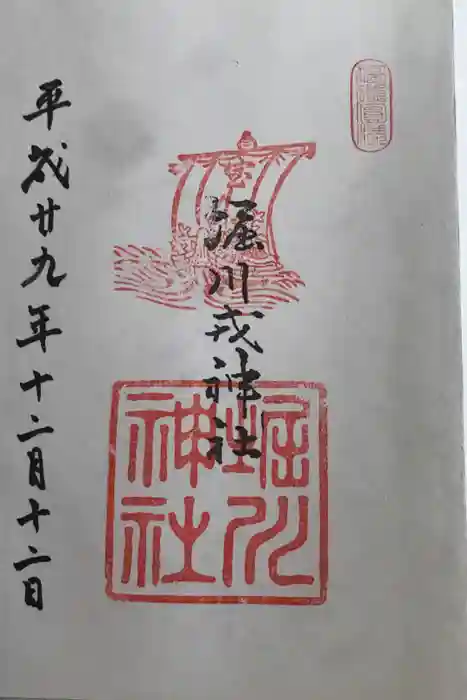 堀川戎神社
平成廿九年十二月十二日
堀川
神社